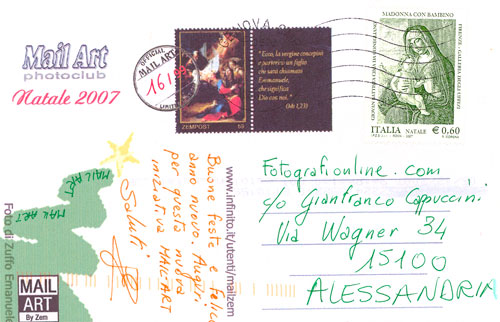 Mail Art
photoclub
Natale 2007
OFFICIAL
MAIL ART
ZEMPOST
"Ecco, la vergine concepirà
e partorirà un figlio
che sarà chiamato
Emmanuele,
che significa
Dio con noi."
(Mt 1,23)
MADONNA CON BAMBINO
ITALIA NATALE € 0,60
Fotografionline.com
c/o Gianfranco Cappuccini
Via Wagner 34
15100
ALESSANDRIA
www.infinito.it/utenti/mailzem
Buone feste e felice
anno nuovo. Auguri
per questa nuova
iniziativa MAIL-ART
Saluti
MAIL ART
MAIL ART
Foto di Zuffo Emanuele
MAIL
ART
By Zem